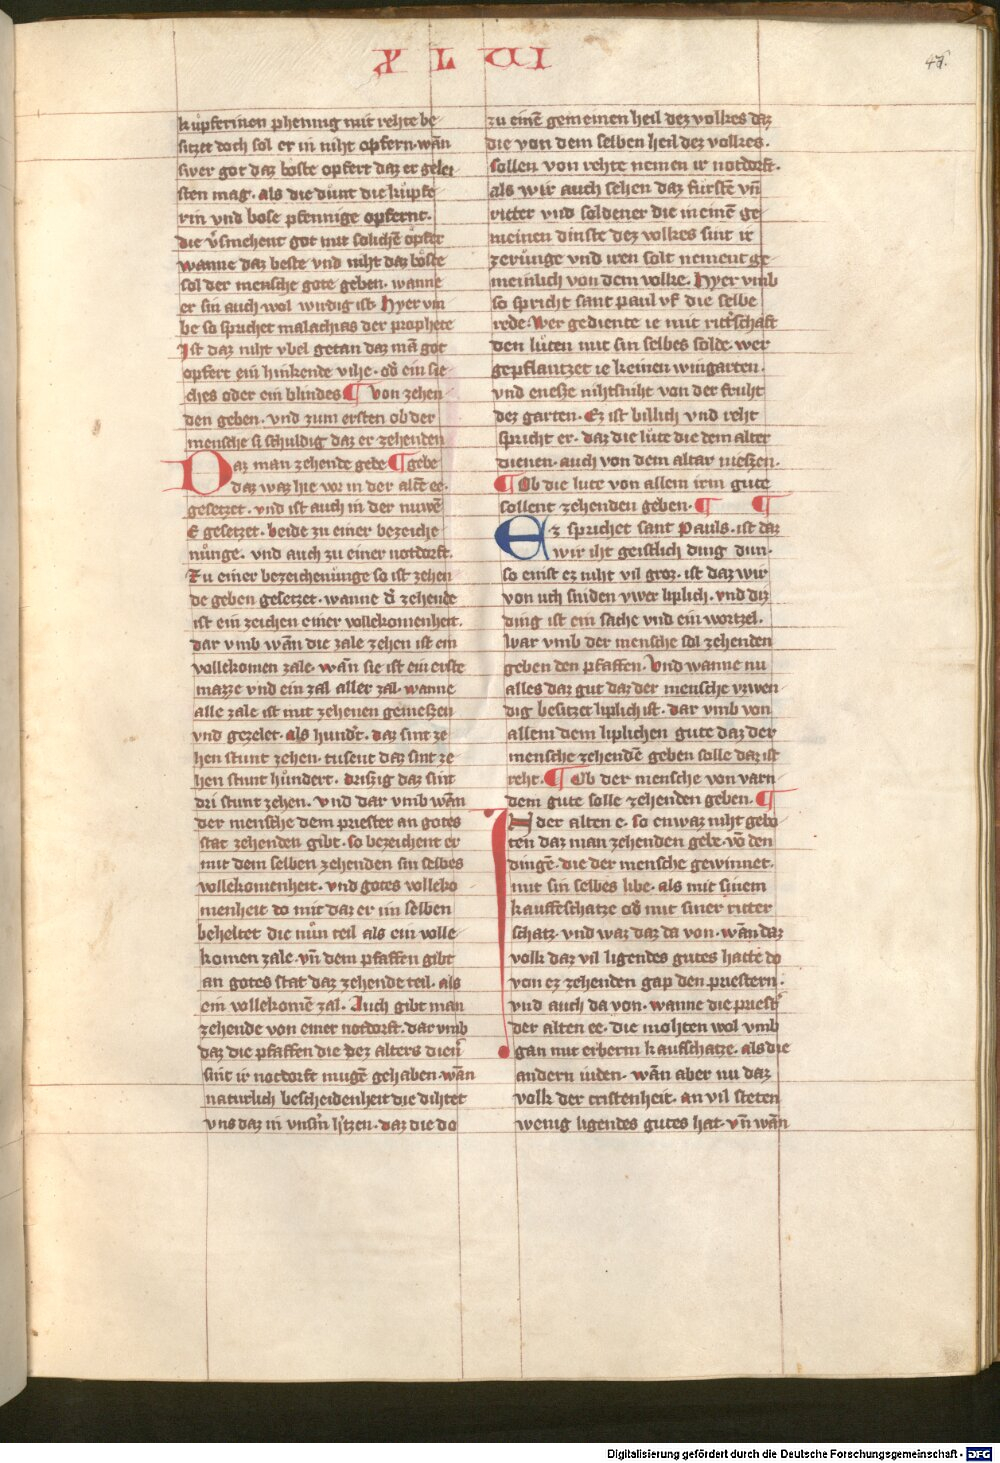 XLVI
47.
kupferinen phennig mit rehte be
sitzet doch sol er in niht opfern. wan̄
swer got daz boͤste opfert daz er gelei
sten mag. als die duͦnt die kuͤpfe
rin vnd boͤse pfennige opfernt.
die v̓smehent got mit solichē opfer
wanne daz beste vnd niht daz boͤste
sol der mensche gote geben. wanne
er sin auch wol wirdig ist. Hyer vm
be so sprichet malachias der prophete
Ist daz niht vbel getan daz mā got
opfert ein hinkende vihe. od̓ ein sie
ches oder ein blindes ¶ von zehen
den geben. vnd zum ersten ob der
mensche si schuldig daz er zehenden
Daz man zehende gebe ¶ gebe
daz waz hie vor in der altē ee.
gesetzet. vnd ist auch in der nuwē
E gesetzet. beide zu einer bezeiche
nuͤnge. vnd auch zu einer notdorft.
Zu einer bezeichenuͤnge so ist zehen
de geben gesetzet. wanne d̓ zehende
ist ein zeichen einer vollekomenheit.
dar vmb wan̄ die zale zehen ist ein
vollekomen zale. wan̄ sie ist ein erste
mazze vnd ein zal aller zal. wanne
alle zale ist mit zehenen gemeszen
vnd gezelet. als hund̓t. daz sint ze
hen stunt zehen. tusent daz sint ze
hen stunt huͤndert. driszig daz sint
dri stunt zehen. vnd dar vmb wan̄
der mensche dem priester an gotes
stat zehenden gibt. so bezeichent er
mit dem selben zehenden sin selbes
vollekomenheit. vnd gotes volleko
menheit do mit daz er im selben
beheltet die nuͤn teil als ein volle
komen zale. vn̄ dem pfaffen gibt
an gotes stat daz zehende teil. als
ein vollekomē zal. Auch gibt man
zehende von einer notdorft. dar vmb
daz die pfaffen die dez alters dien̄
sint ir notdorft mugē gehaben. wan̄
naturlich bescheidenheit die dihtet
vns daz in vnsn̓ h̓tzen. daz die do
zu einē gemeinen heil dez volkes daz
die von dem selben heil dez volkes.
sollen von rehte nemen ir notdorft.
als wir auch sehen daz furstē vn̄
ritter vnd soldener die in einē ge
meinen dinste dez volkes sint ir
zeruͤnge vnd iren solt nement ge
meinlich von dem volke. Hyer vmb
so spricht sant paul vf die selbe
rede. Wer gediente ie mit ritt̓schaft
den luͤten mit sin selbes solde. wer
gepflantzet ie keinen wingarten.
vnd enesze nihtsniht von der fruht
dez garten. Ez ist billich vnd reht
spricht er. daz die luͤte die dem alter
dienen. auch von dem altar nieszen.
¶ Ob die lute von allem irm gute
sollent zehenden geben. ¶ ¶
Ez sprichet sant Pauls. ist daz
wir iht geistlich ding dun.
so enist ez niht vil groz. ist daz wir
von uch sniden vwer liplich. vnd diz
ding ist ein sache vnd ein wortzel.
war vmb der mensche sol zehenden
geben den pfaffen. Vnd wanne nu
alles daz gut daz der mensche vzwen
dig besitzet liplich ist. dar vmb von
allem dem liplichen gute daz der
mensche zehendē geben solle daz ist
reht. ¶ Ob der mensche von varn
dem gute solle zehenden geben. ¶
IN der alten e. so enwaz niht gebo
ten daz man zehenden gebe. vō den
dingē. die der mensche gewinnet.
mit sin selbes libe. als mit sinem
kauffeschatze od̓ mit siner ritter
schatz. vnd waz daz da von. wan̄ daz
volk daz vil ligendes gutes hatte do
von ez zehenden gap den priestern.
vnd auch da von. wanne die priest̓
der alten ee. die mohten wol vmb
gan mit erberm kaufschatze. als die
andern iuden. wan̄ aber nu daz
volk der cristenheit. an vil steten
wenig ligendes gutes hat. vn̄ wan̄
Digitalisierung gefördert durch die Deutsche Forschungsgemeinschaft - DFG